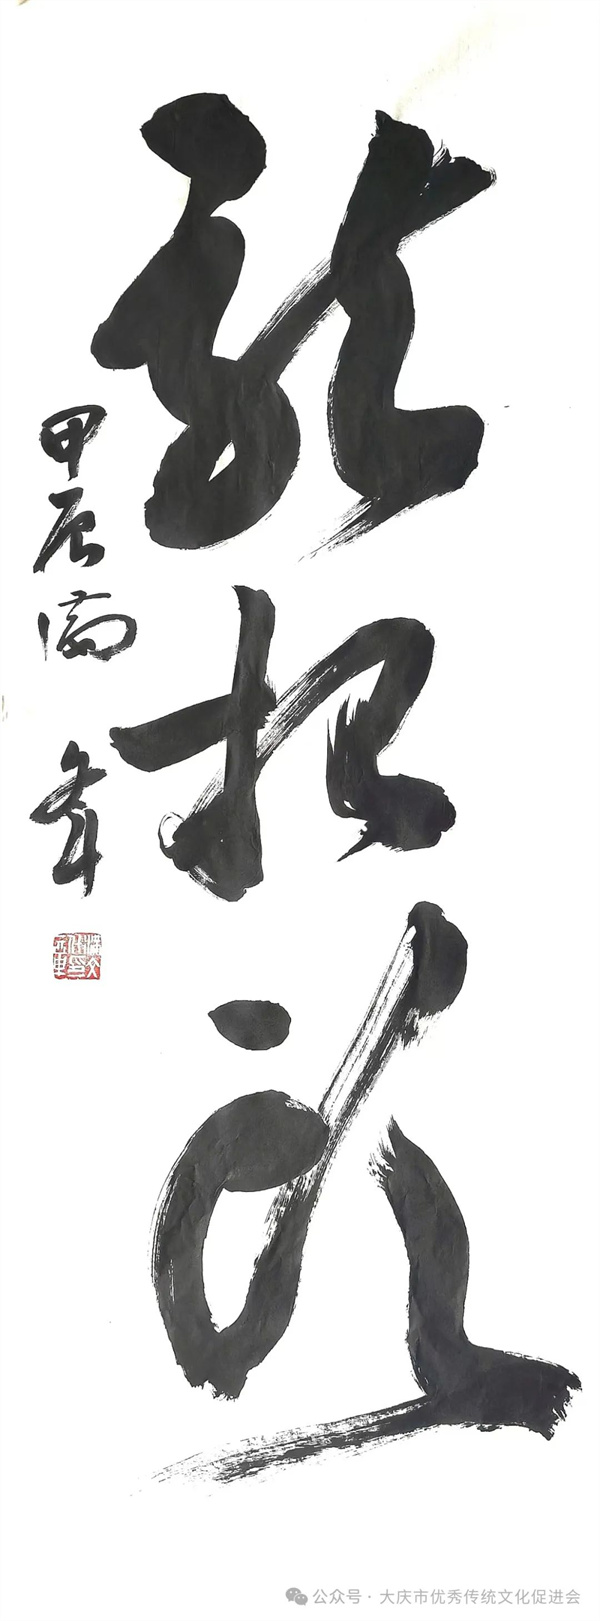 龍抬頭
甲辰
公众号·大庆市优秀传统文化促进会